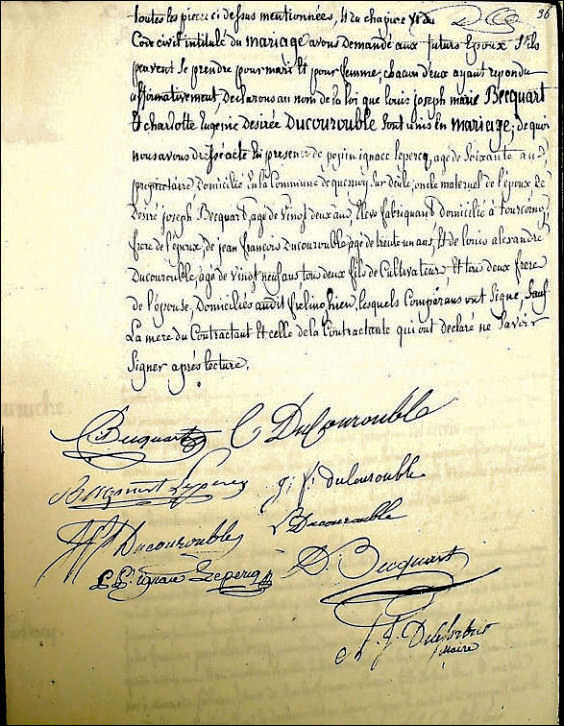 36
toutes les pieces ci dessus mentionnées, et du chapitre VI du
Code civil intitulé du mariage avons demandé aux futurs Epoux s'ils
peuvent se prendre pour mari et pour femme, chacun d'eux ayant repondu
affirmativement, declarons au nom de la loi que louis joseph marie Becquart
et charlotte Eugenie Desirée Ducourouble sont unis en mariage; de quoi
nous avons dressé acte En presence de pepin ignace lepercq, agé de soixante ans
proprietaire domicilié En la Commune de quesnoy sur deûle, oncle maternel de l'époux de
Desiré joseph Becquart, agé de vingt deux ans, Eleve fabriquant domicilié à tourcoing,
frere de l'époux, de jean françois Ducourouble, agé de trente un ans, Et de louis alexandre
Ducourouble, agé de vingt neuf ans, tous deux fils de Cultivateur Et tous deux frere
de l'épouse, Domiciliés audit frelinghien, lesquels Comparans ont signé, sauf
La mere du Contractant Et celle de la Contractante qui ont declaré ne savoir
signer après lecture.
Becquart C Ducourouble
Becquart Lepercq j. f. ducourouble
Ducourouble L Ducourouble
ignace Lepercq D. Becquart
maire